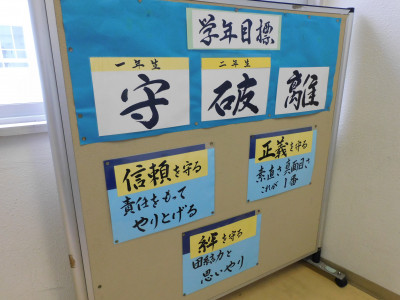 学年目標
一年生
守
二年生
破
離
信頼を守る
責任をもって
やりとげる
正義を守る
素直さ真面目さ
これが1番
絆を守る
団結力と
思いやり